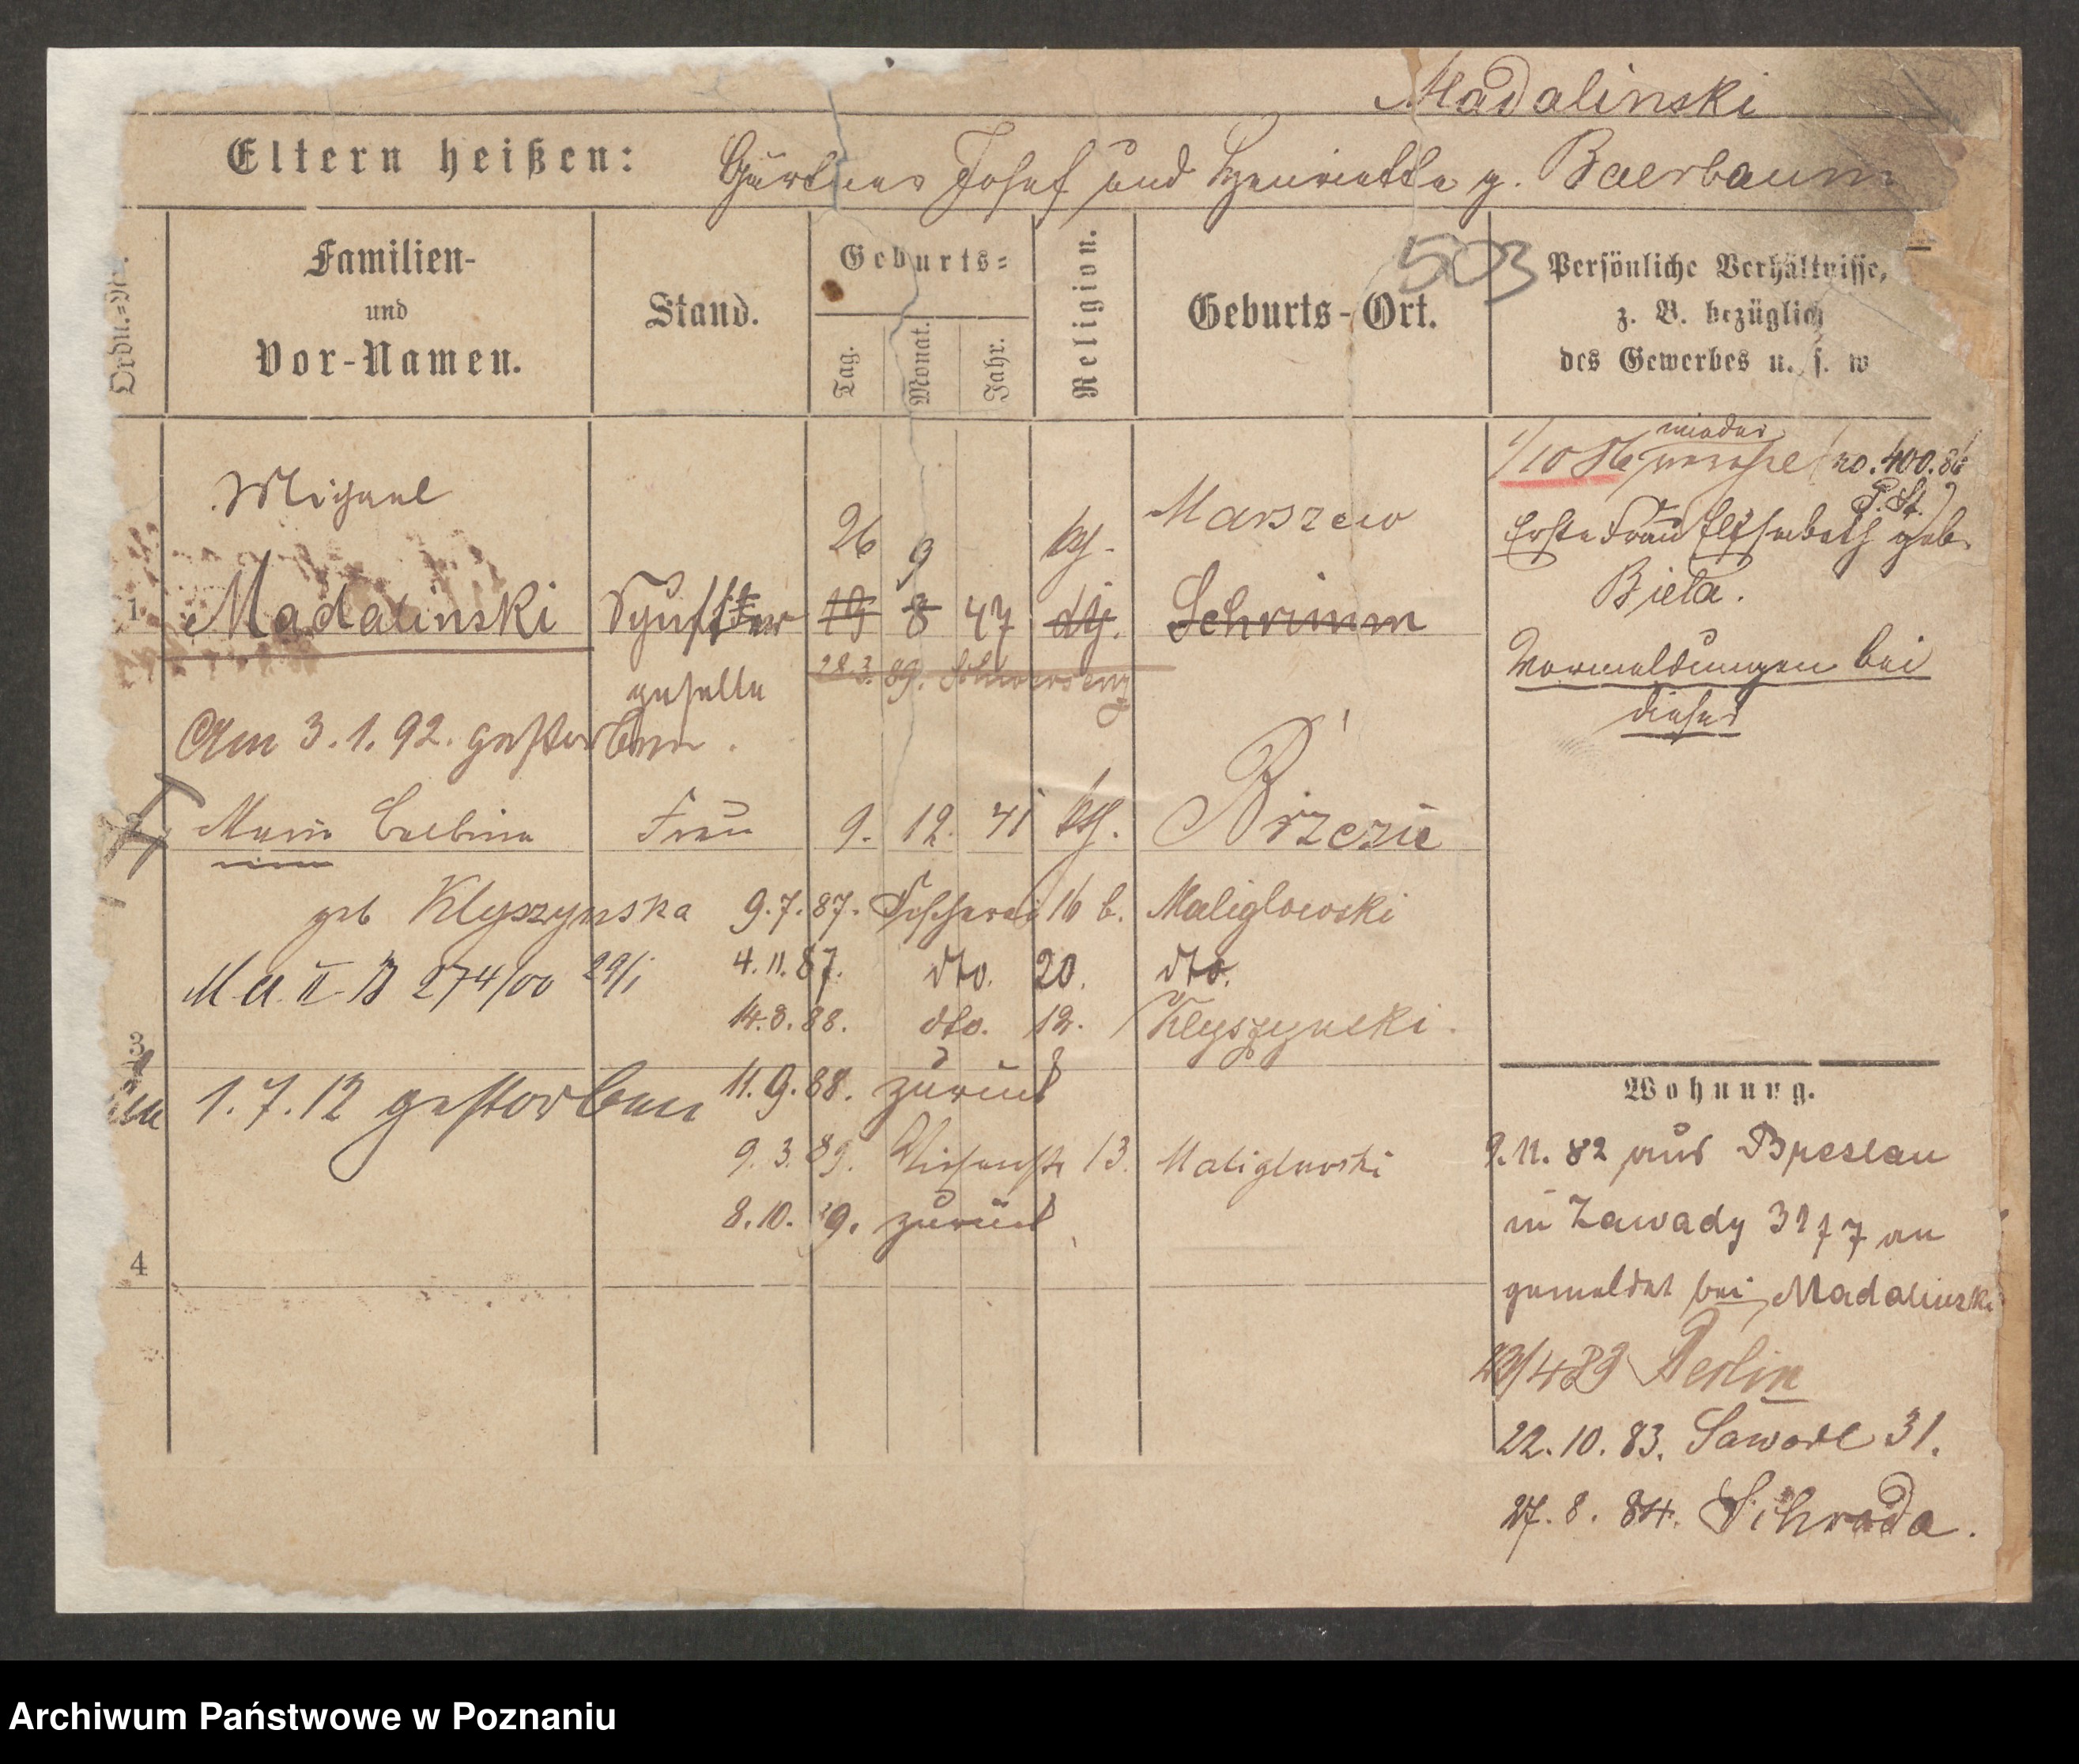 Madalinski
Eltern heißen: Gärtner Josef und Henriette g. Baerbaum
503
Ordn.-Nr.
Familien-
und
Vor-Namen.
Stand.
Geburts=
Tag.
Monat.
Jahr.
Religion.
Geburts-Ort.
Persönliche Verhältnisse,
z. B. bezüglich
des Gewerbes u. s. w
1/10 86 wieder no. 400.86
P. St.
Michael
26 9 kth. Marszew
1 Madalinski 19 8 47 Schrimm
geselle 28.3. 89. Schwersenz
Am 3.1.92. gestorben.
Erste Frau Elisabeth geb.
Biela.
Vormeldungen bei
dieser
2 Marie Balbina Frau 9. 12. 41 kth. Brzezie
geb Klyszynska 9.7.87. Fischerei 16 b. Maliglowski
M. A. II B 274/00 29/1 4.11.87. dto. 20. dto.
14.8.88. dto. 12. Klyszynski.
3
1.7.12 gestorben 11.9.88. zurück
9.3.89. Wiesenstr 13. Maliglowski
8.10. 9. zurück
4
Wohnung.
9.11.82 aus Breslau
in Zawady 31 7 an
gemeldet bei Madalinski
23/4 83 Berlin
22.10.83. Sawade 31.
27.8.84. Schroda.
Archiwum Państwowe w Poznaniu